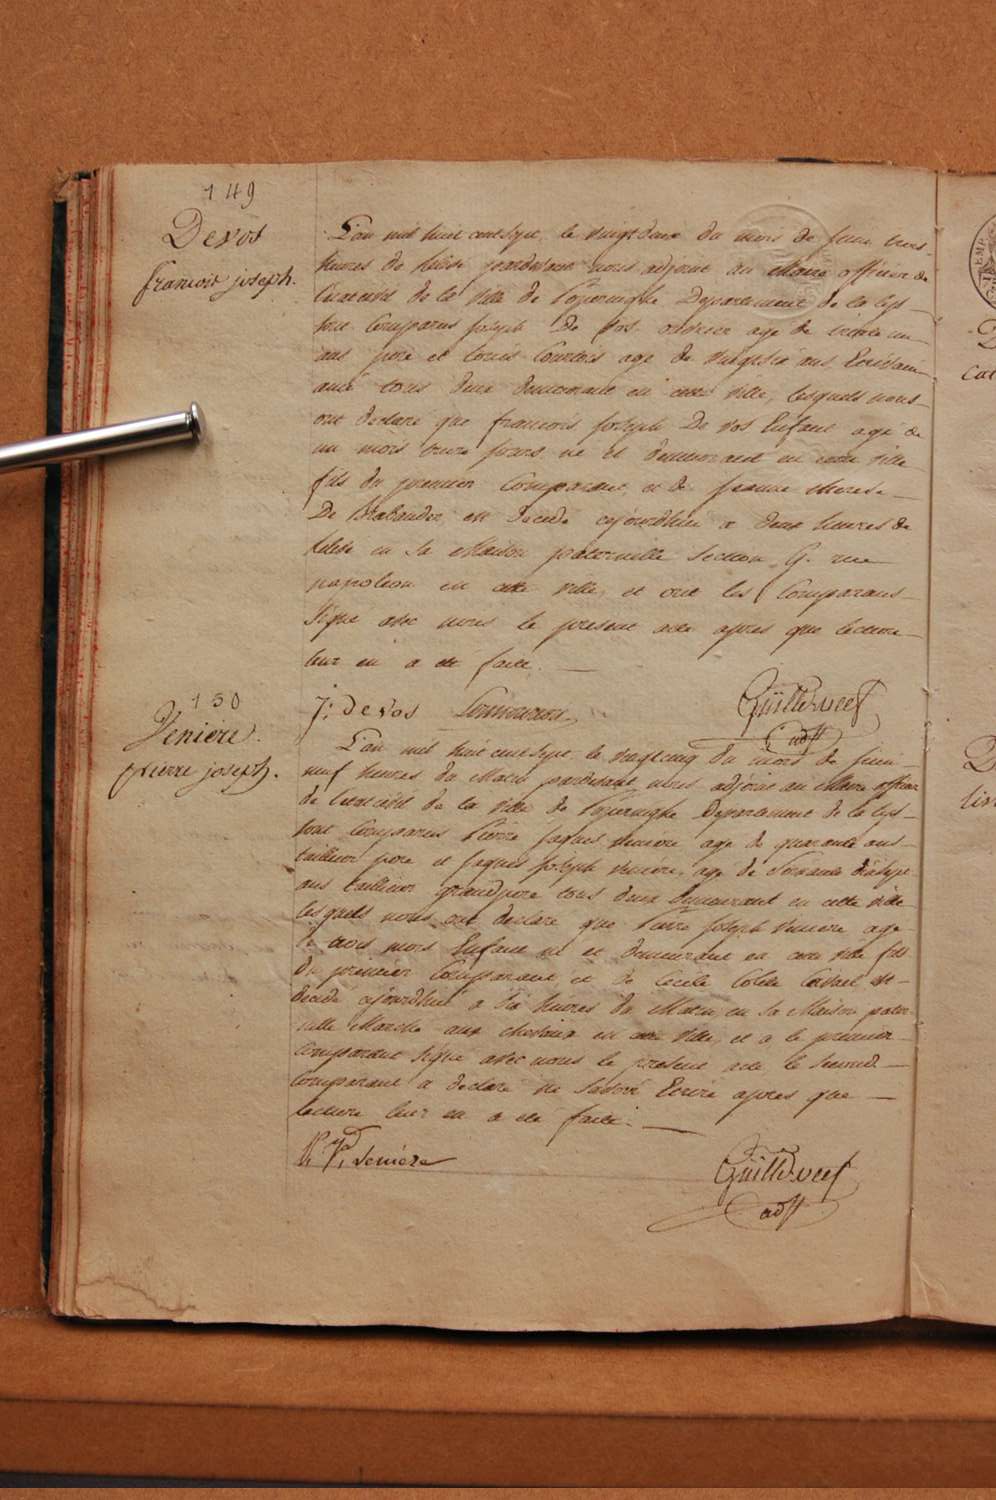 149
Devos
francois joseph.
L'an mil huit cent sept, le vingt deux du mois de juin trois
heures de relevé pardevant nous adjoint au Maire officier de
l'état civil de la ville de Poperinghe Departement de la Lys –
sont Comparus joseph De Vos ouvrier age de trente un
ans pere et Louis Courtois age de vingt six ans
tous deux demeurant en cette ville, lesquels nous
ont declaré que francois joseph De vos Enfant agé de
un mois jours né et demeurant en cette ville
fils du premier Comparant, et de jeanne therese
De Brabander est decedé cejourdhui a deux heures de
relevé en sa Maison paternelle Section G. rue
napoleon en cette ville, et ont les Comparans
signé avec nous le present acte apres que lecture
leur en a eté faite.
J: De vos
Guilleweef
adjt
150
Veniere.
pierre joseph.
L'an mil huit cent sept le vingt cinq du mois de juin
neuf heures du Matin pardevant nous adjoint au Maire officier
de l'état civil de la ville de Poperinghe Departement de la Lys –
sont Comparus Pierre jaques veniere age de quarante ans
tailleur pere et jaques joseph veniere, age de soixante dix sept
ans tailleur grandpere tous deux demeurant en cette ville
lesquels nous ont declaré que Pierre joseph veniere age
de trois mois Enfant né et demeurant en cette ville fils
du premier Comparant et de Cecile Colette est
decedé cejourdhui a six heures du Matin en sa Maison pater
nelle Marché aux chevaux en cette ville, et a le premier
Comparant signé avec nous le present acte le second
Comparant a declaré ne savoir Ecrire apres que
lecture leur en a eté faite.
P. veniere
Guilleweef
adjt